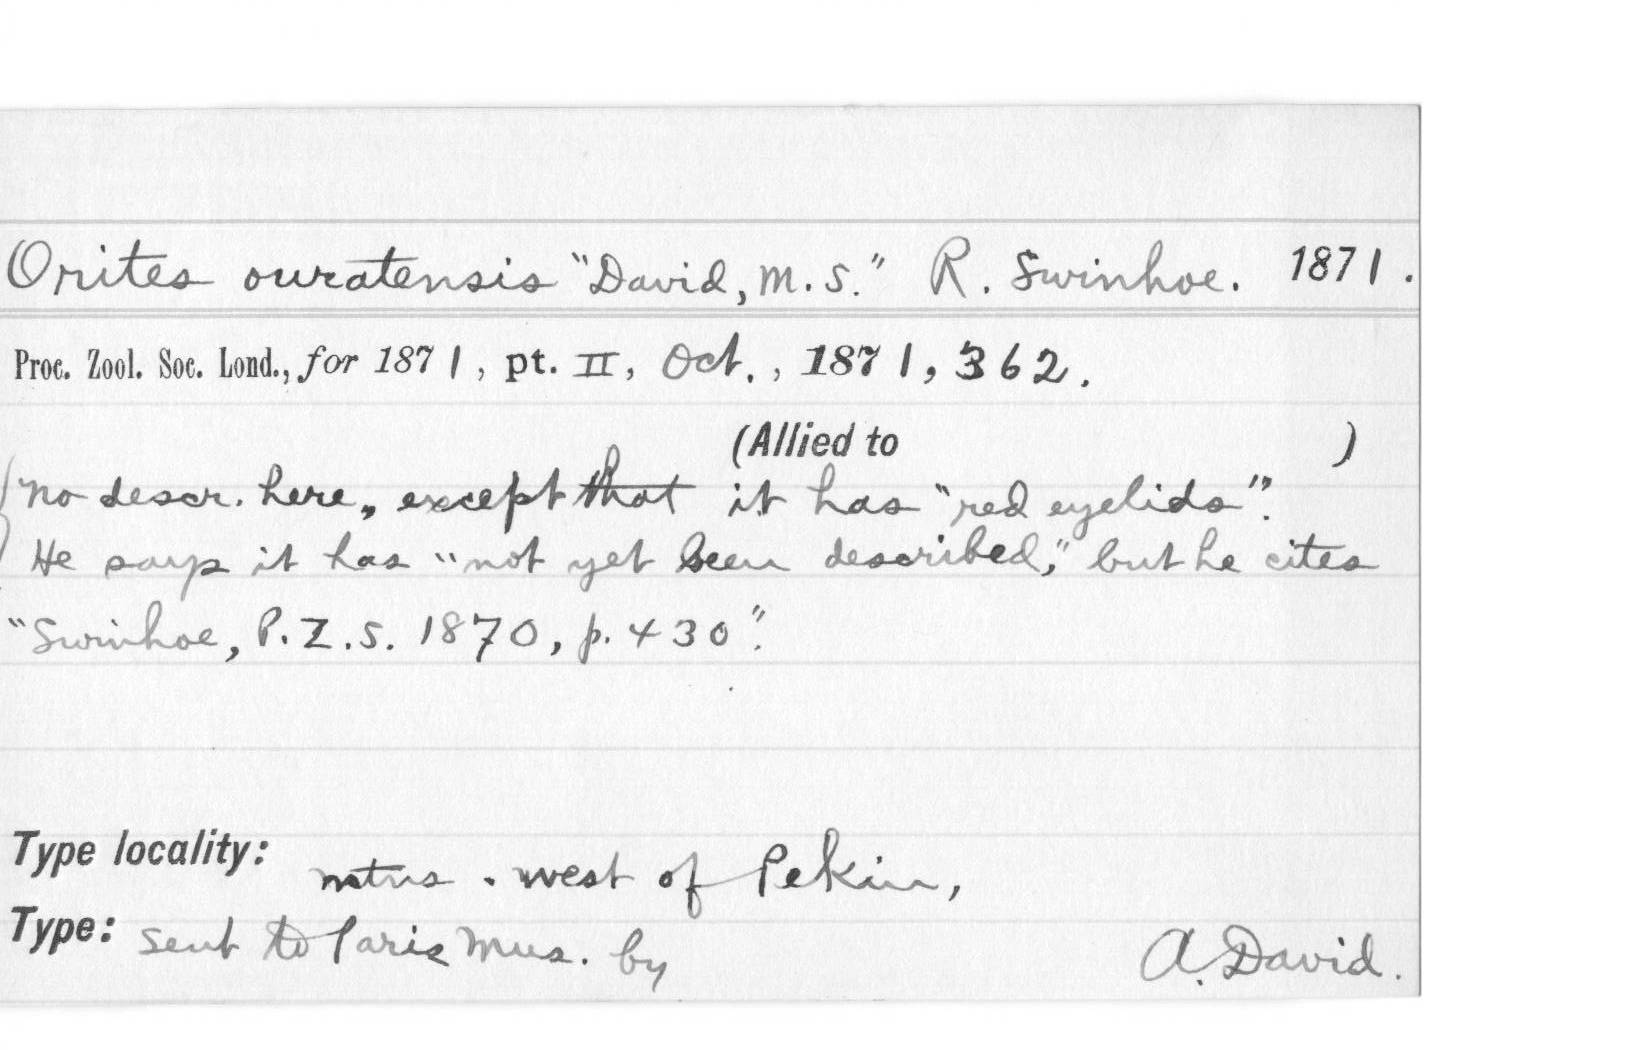 Orites ouratensis "David, M.S." R. Swinhoe. 1871.
Proc. Zool. Soc. Lond., for 1871, pt. II, Oct., 1871, 362.
(Allied to )
(no descr. here, except that it has "red eyelids".
He says it has "not yet been described," but he cites
"Swinhoe, P.Z.S. 1870, p. 430".
Type locality: mtns. west of Pekin,
Type: sent to Paris Mus. by A. David.